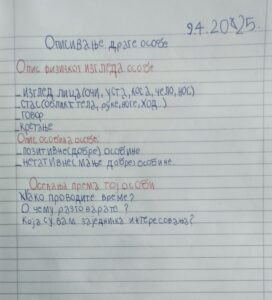 24.2025.
Описивање драге особе
Опис физичког изгледа особе
_ изглед лица(очи, уста, коса, чело, нос)
_ стас(облик тела, руке, ноге, ход..)
_ говор
_ кретање
Опис особина особе
_ позитивне(добре) особине
_ негативне(мање добре) особине
Осећања према тој особи
Како проводите време?
О чему разговарате?
Која су вам заједничка интересовања?